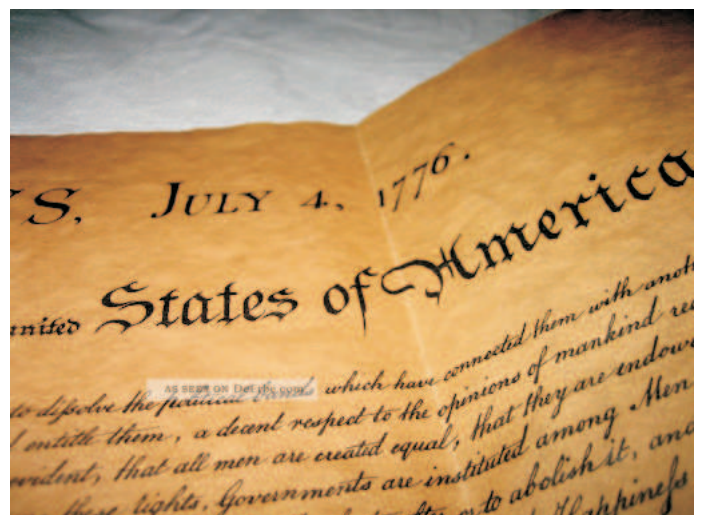 S, JULY 4, 1776.
united States of America
to dissolve the political bands which have connected them with anoth
entitle them, a decent respect to the opinions of mankind re
evident, that all men are created equal, that they are endow
these rights, Governments are instituted among Men
or to abolish it, and
Happiness
AS SEEN ON